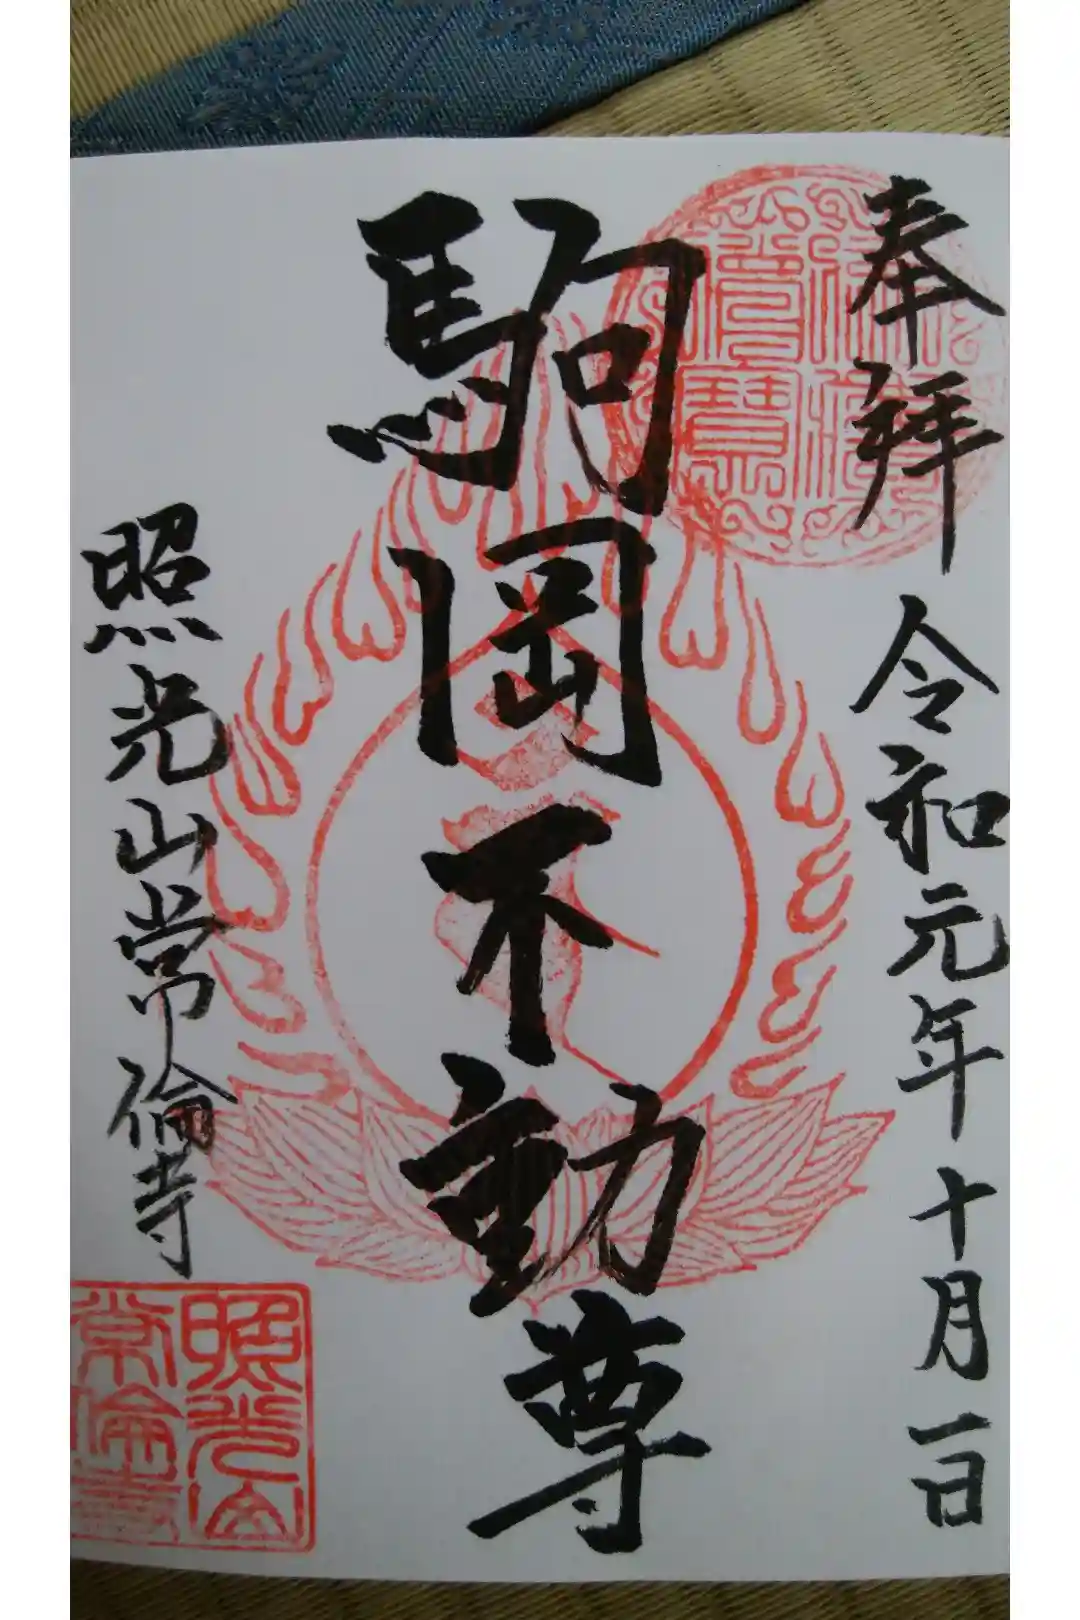 奉拝 令和元年十月一日
駒岡不動尊
照光山常倫寺
照光山
常倫寺